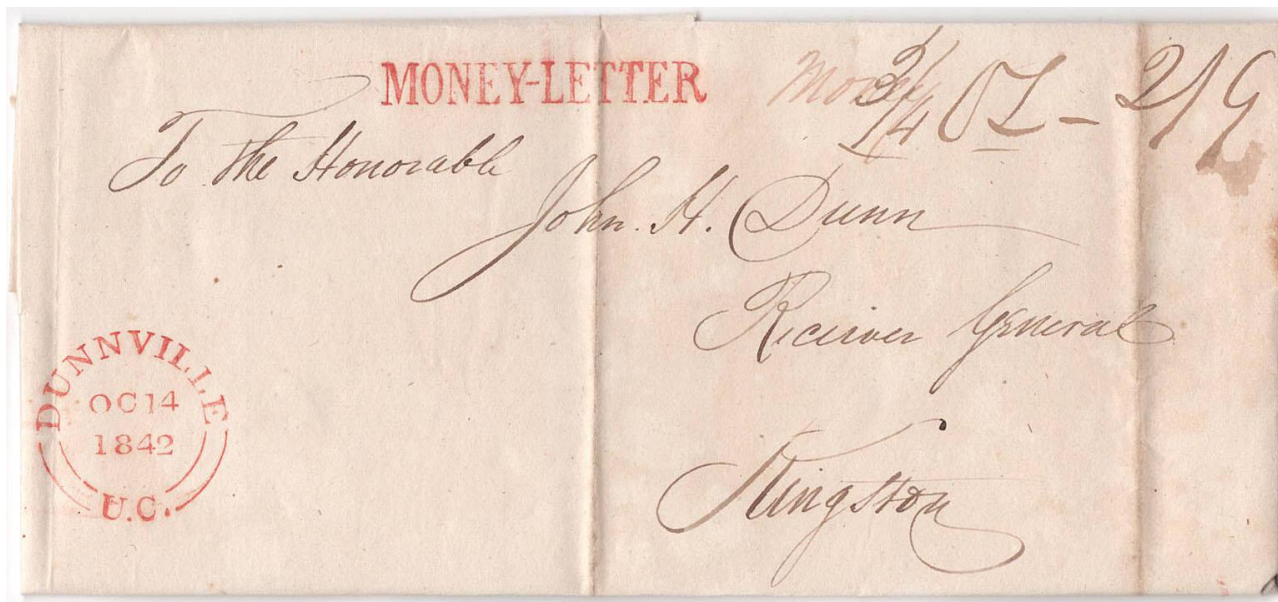 MONEY-LETTER
Money
2/9
To the Honorable
John. H. Dunn
Receiver General
Kingston
DUNNVILLE
OC 14
1842
U.C.